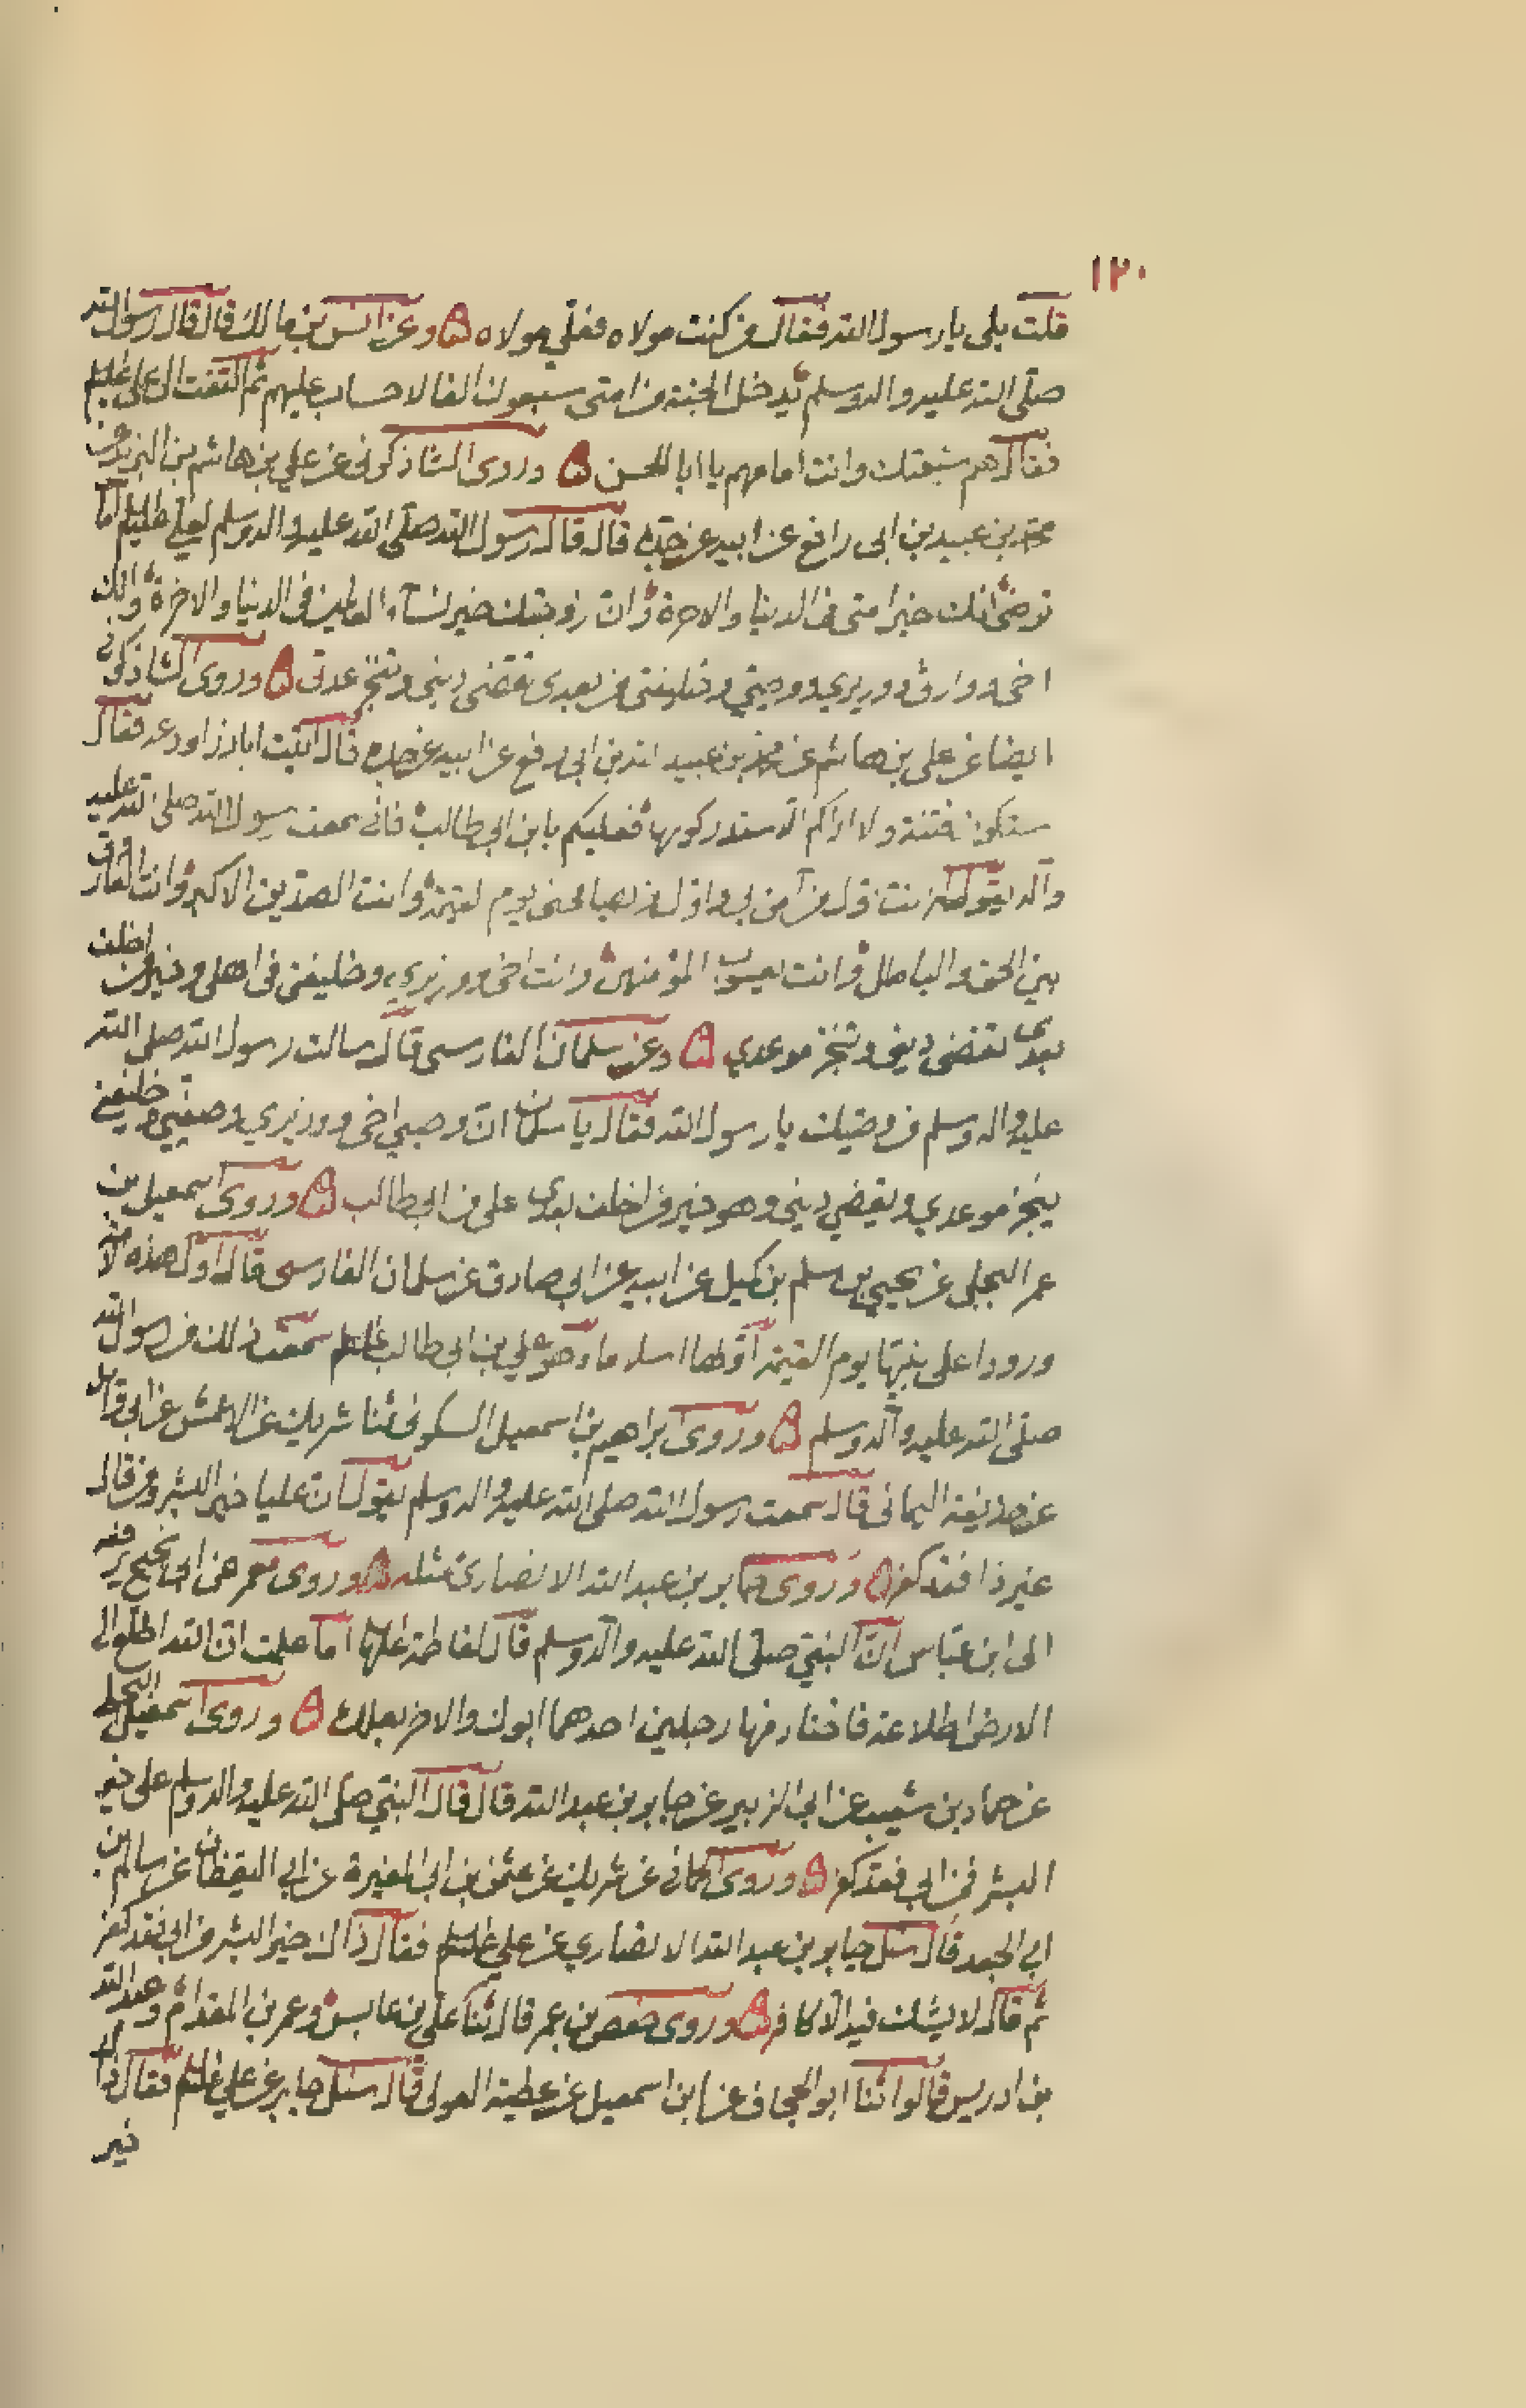 ١٢٠
قلت بلى يا رسول الله فقال من كنت مولاه فعلي مولاه ۵ وعن انس بن مالك قال قال رسول الله
صلى الله عليه واله وسلم يدخل الجنة من امتى سبعون الفا لا حساب عليهم ثم التفت الى على عليلم
فقال هم شيعتك وانت امامهم يا ابا الحسن ۵ وروى الشاذكونى عن علي بن هاشم بن البريد عن
محمد بن عبيد بن ابى رافع عن ابيه عن جده قال قال رسول الله صلى الله عليه واله وسلم لعلي عليلم اما
ترضى انك خير امتى فى الدنيا والاخرة وان زوجتك خير نسآء العالمين فى الدنيا والاخرة وانك
اخى ووارثى ووزيري ووصيتي وخليفتى من بعدى تقضى دينى وتنجز عدتى ۵ وروى الشاذكونى
ايضا عن على بن هاشم عن محمد بن عبيد الله بن ابى رافع عن ابيه عن جده قال اتيت اباذر اودعه فقال
ستكون فتنة ولا اراكم الا ستدركونها فعليكم بابن ابى طالب فانى سمعت رسول الله صلى الله عليه
وآله يقول انت اول من آمن بي واول من يصافحنى يوم القيمة وانت الصديق الاكبر وانت الفاروق
بين الحق والباطل وانت يعسوب المؤمنين وانت اخى ووزيري وخليفتى فى اهلى وخير من اخلف
بعدى تقضى دينى وتنجز موعدي ۵ وعن سلمان الفارسى قال سالت رسول الله صلى الله
عليه واله وسلم من وصيك يا رسول الله فقال يا سلمان ان وصيي اخى ووزيري وصفيي وخليفتي
ينجز موعدي ويقضي دينى وهو خير من اخلف بعدى على بن ابى طالب ۵ وروى اسمعيل بن
عمر البجلى عن يحيي بن سلم بن كهيل عن ابيه عن ابي صادق عن سلمان الفارسى قال اول هذه الامة
ورودا على نبيها يوم القيمة اولها اسلاما وهو علي بن ابى طالب عليلم سمعت ذلك من رسول الله
صلى الله عليه وآله وسلم ۵ وروى ابراهيم بن اسمعيل السكونى ثنا شريك عن الاعمش عن ابى وائل
عن حذيفة اليمانى قال سمعت رسول الله صلى الله عليه واله وسلم يقول ان عليا خير البشر ومن قال
غير ذا فقد كفر ۵ وروى جابر بن عبد الله الانصارى مثله ۵ وروى معمر عن ابى نجيح يرفعه
الى ابن عباس ان النبي صلى الله عليه وآله وسلم قال لفاطمة اما علمت ان الله اطلع الى
الارض اطلاعة فاختار منها رجلين احدهما ابوك والاخر بعلك ۵ وروى اسمعيل البجلي
عن حماد بن شعيب عن ابى الزبير عن جابر بن عبد الله قال قال النبي صلى الله عليه واله وسلم على خير
البشر فمن ابى فقد كفر ۵ وروى الحمانى عن شريك عن عثمن بن ابى المغيرة عن ابي اليقظان عن سالم بن
ابي الجعد قال سئل جابر بن عبد الله الانصاري عن علي عليلم فقال ذاك خير البشر من ابى فقد كفر
ثم قال لا يشك فيه الا كافر ۵ وروى حفص بن عمر قال ثنا على بن عابس وعمر بن المقدام وعبد الله
بن ادريس قالوا ثنا ابو الجحاف عن ابن اسمعيل عن عطية العوفى قال سئل جابر عن علي عليلم فقال ذاك
خير